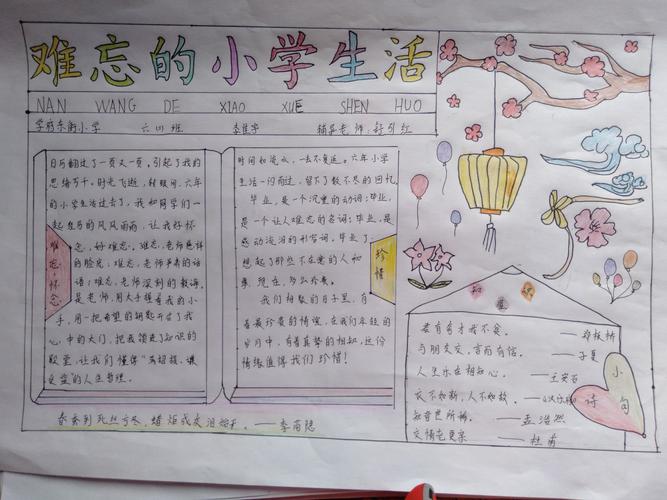 难忘的小学生活
NAN WANG DE XIAO XUE SHEN HUO
学府东街小学 六四班 李佳宇 辅导老师:舒引红
日历翻过了一页又一页,引起了我的
思绪万千。时光飞逝,转眼间,六年
的小学生活过去了。我和同学们一
起乘号的风风雨雨,让我好怀
念,好难忘。难忘,老师慈祥
的脸庞,难忘,老师亲善的话
语;难忘,老师深刻的教诲。
是老师,用大手握着我的小
手,用一把希望的钥匙开启了我
心中的大门,把我领进了知识的
殿堂,让我们懂得
的人生哲理。
难忘怀念
时间如流水,一去不复返。六年小学
生活一闪而过,留下了数不尽的回忆。
毕业,是一个沉重的动词;毕业,
是一个让人难忘的名词;毕业,是
感动流泪的形容词。毕业了,
想起了那些不在意的人和
事,现在,多么珍贵。
我们相聚的日子里,有
着最珍贵的情谊,在我们年轻的
岁月中,有着真挚的相知,这份
情缘值得我们珍惜!
珍惜
春蚕到死丝方尽,蜡炬成灰泪始干。——李商隐
知识
若有奇才我不贪。——郑板桥
与朋友交,言而有信。——子夏
人生乐在相知心。——王安石
衣不如新,人不如故。——《汉乐府》
——孟浩然
交情老更亲 ——杜甫
小诗句